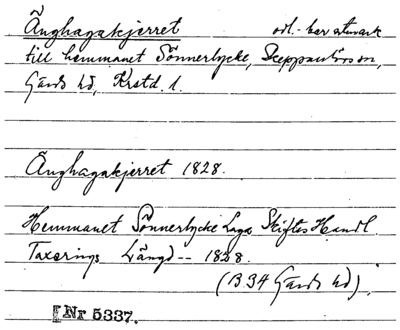 Änghagakjerret
till hemmanet Sönnerlycke,
Gärds hd, Krstd. l.
Änghagakjerret 1828.
Hemmanet Sönnerlycke Laga Skiftes Handl.
Taxerings Längd -- 1828.
(B34 Gärds hd).
Nr 5337.